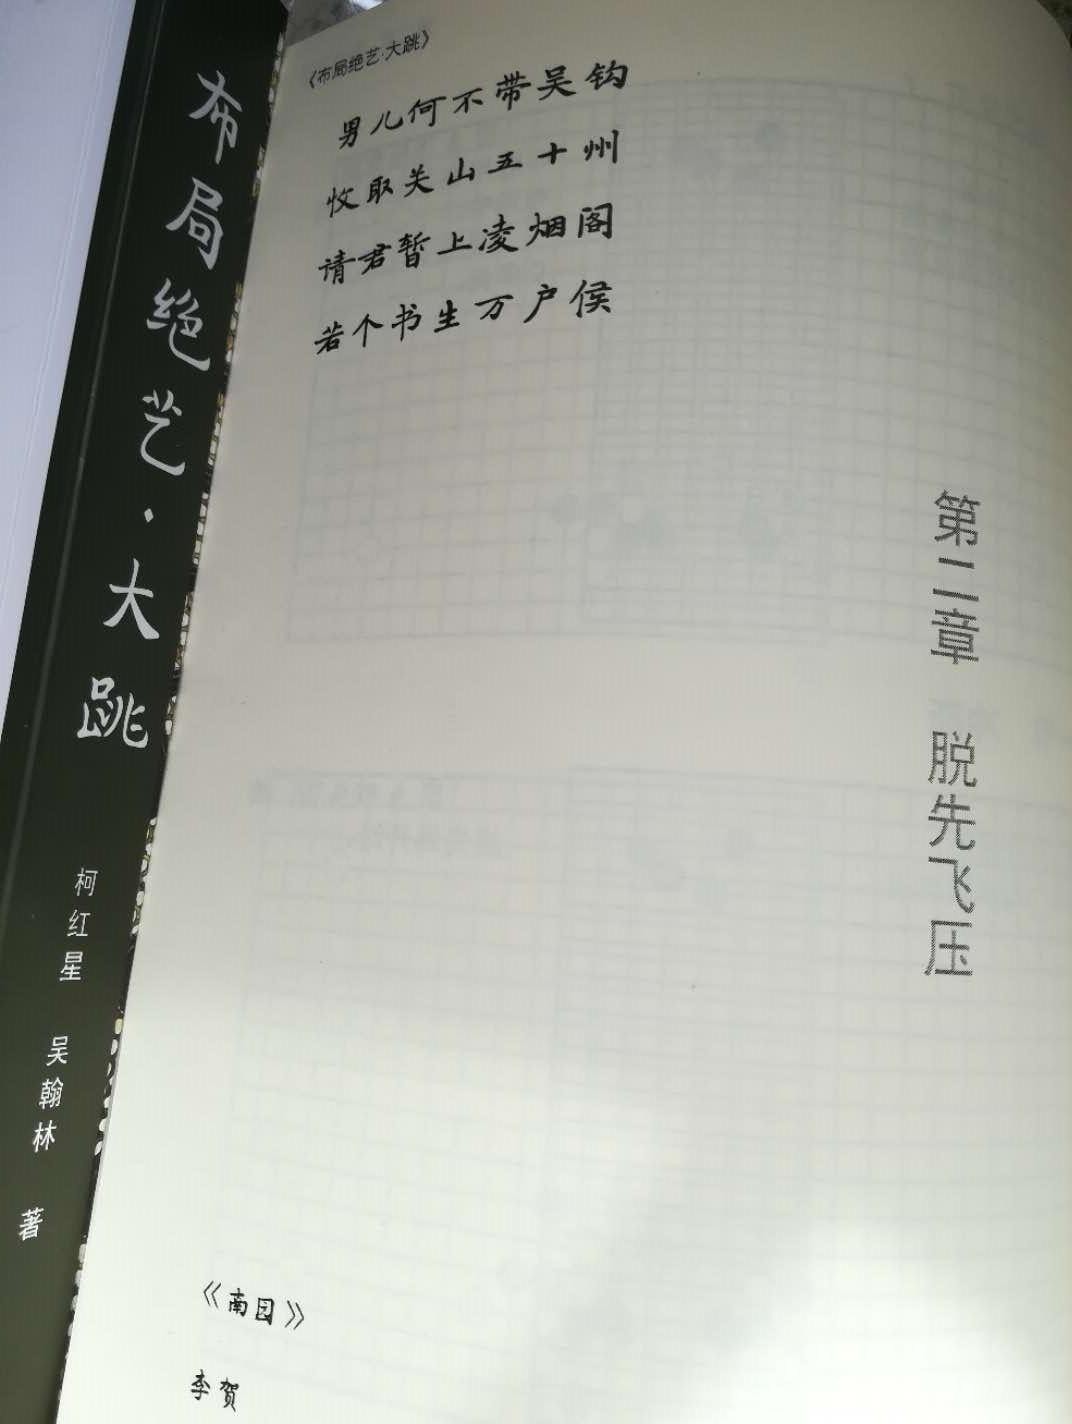 布局绝艺·大跳
柯红星 吴翰林 著
《布局绝艺·大跳》
男儿何不带吴钩
收取关山五十州
请君暂上凌烟阁
若个书生万户侯
第二章 脱先飞压
《南园》
李贺